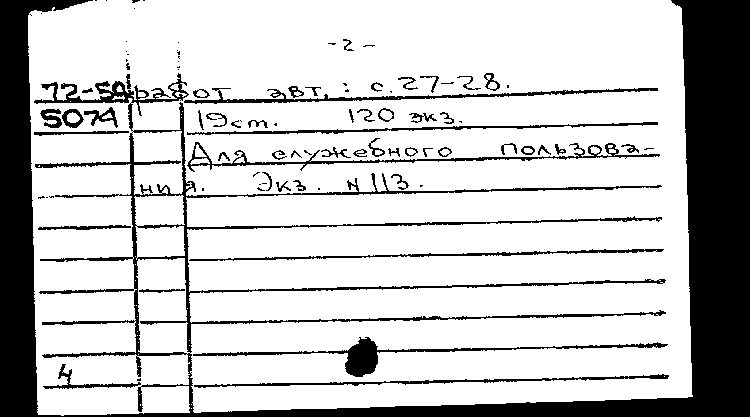 - 2 -
72-59 работ авт, : с. 27-28.
5074 19 см. 120 экз.
Для служебного пользова-
ния. Экз. N 113.
4